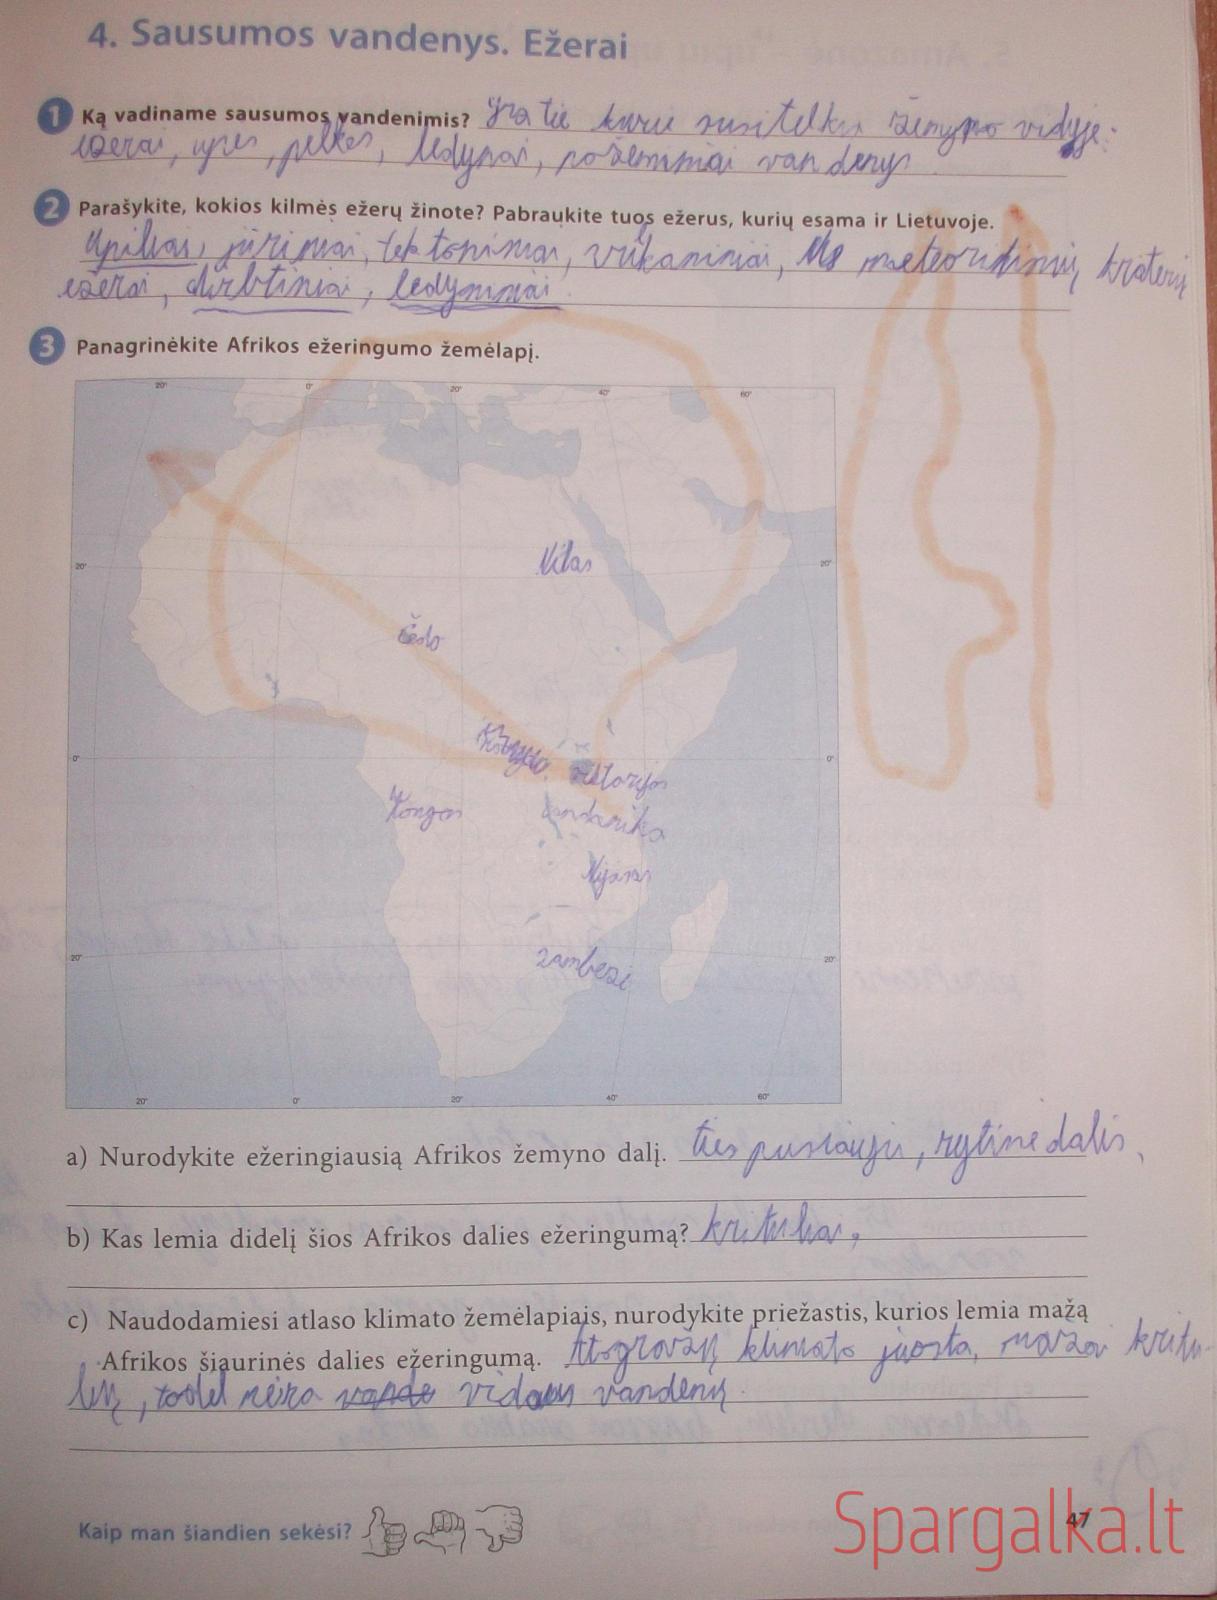 4. Sausumos vandenys. Ežerai
1 Ką vadiname sausumos vandenimis? Yra tie kurie susitelkę žemyno viduje:
ežerai, upės, pelkės, ledynai, požeminiai vandenys
2 Parašykite, kokios kilmės ežerų žinote? Pabraukite tuos ežerus, kurių esama ir Lietuvoje.
Upiniai, jūriniai, tektoniniai, vulkaniniai, meteoritinių kraterių
ežerai, dirbtiniai, ledyniniai
3 Panagrinėkite Afrikos ežeringumo žemėlapį.
20° 0° 20° 40° 60°
Nilas
20° 20°
Čado
0° 0°
Viktorijos
Kongas
Njasas
20° 20°
Zambezi
20° 0° 20° 40° 60°
a) Nurodykite ežeringiausią Afrikos žemyno dalį. ties pusiauju, rytinė dalis
b) Kas lemia didelį šios Afrikos dalies ežeringumą? krituliai,
c) Naudodamiesi atlaso klimato žemėlapiais, nurodykite priežastis, kurios lemia mažą
Afrikos šiaurinės dalies ežeringumą. Atogrąžų klimato juosta, mažai kritu-
lių, todėl nėra vidaus vandenų
Kaip man šiandien sekėsi?
47
Spargalka.lt